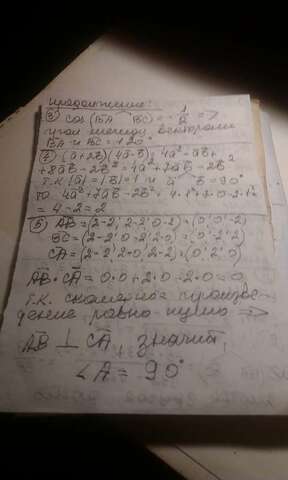 продолжение:
③ cos(BA^BC) = -1/2 =>
угол между векторами
BA и BC = 120°
④ (a+2b)(4a-b) = 4a²-ab+
+8ab-2b² = 4a²+7ab-2b²
т.к |a|=|b|=1 и a^b=90°
то 4a²+7ab-2b² = 4·1²+7·0-2·1²
= 4-2=2
⑤ AB=(2-2; 2-2; 0-2)=(0;0;-2)
BC=(2-2; 0-2; 2-0)=(0;-2;2)
CA=(2-2; 2-0; 2-2)=(0;2;0)
AB·CA=0·0+2·0-2·0=0
т.к. скалярное произве-
дение равно нулю =>
AB ⊥ CA, значит,
∠A = 90°